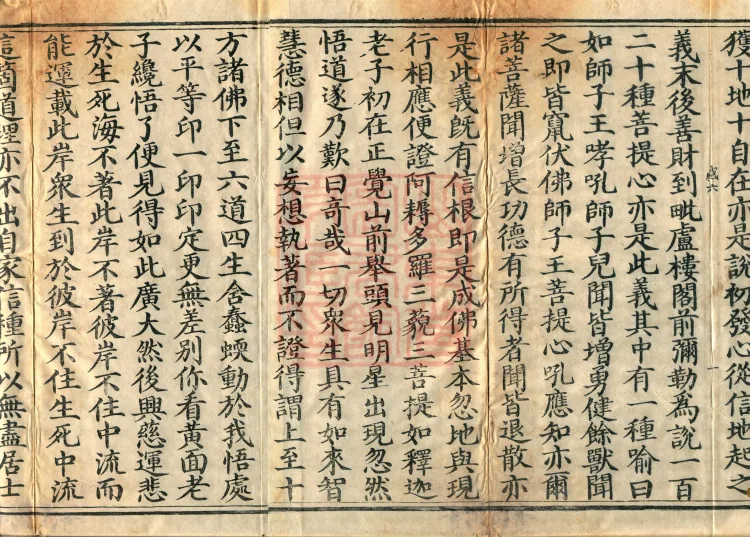 獲十地十自在亦是說初發心從信地起之
義末後善財到毗盧樓閣前彌勒為說一百
二十種菩提心亦是此義其中有一種喻曰
如師子王哮吼師子兒聞皆增勇健餘獸聞
之即皆竄伏佛師子王菩提心吼應知亦爾
諸菩薩聞增長功德有所得者聞皆退散亦
是此義既有信根即是成佛基本忽地與現
行相應便證阿耨多羅三藐三菩提如釋迦
老子初在正覺山前舉頭見明星出現忽然
悟道遂乃歎曰奇哉一切衆生具有如來智
慧德相但以妄想執著而不證得謂上至十
方諸佛下至六道四生含蠢蝡動於我悟處
以平等印一印印定更無差別你看黃面老
子纔悟了便見得如此廣大然後興慈運悲
於生死海不著此岸不著彼岸不住中流而
能運載此岸衆生到於彼岸不住生死中流
這箇道理亦不出自家信種所以無盡居士